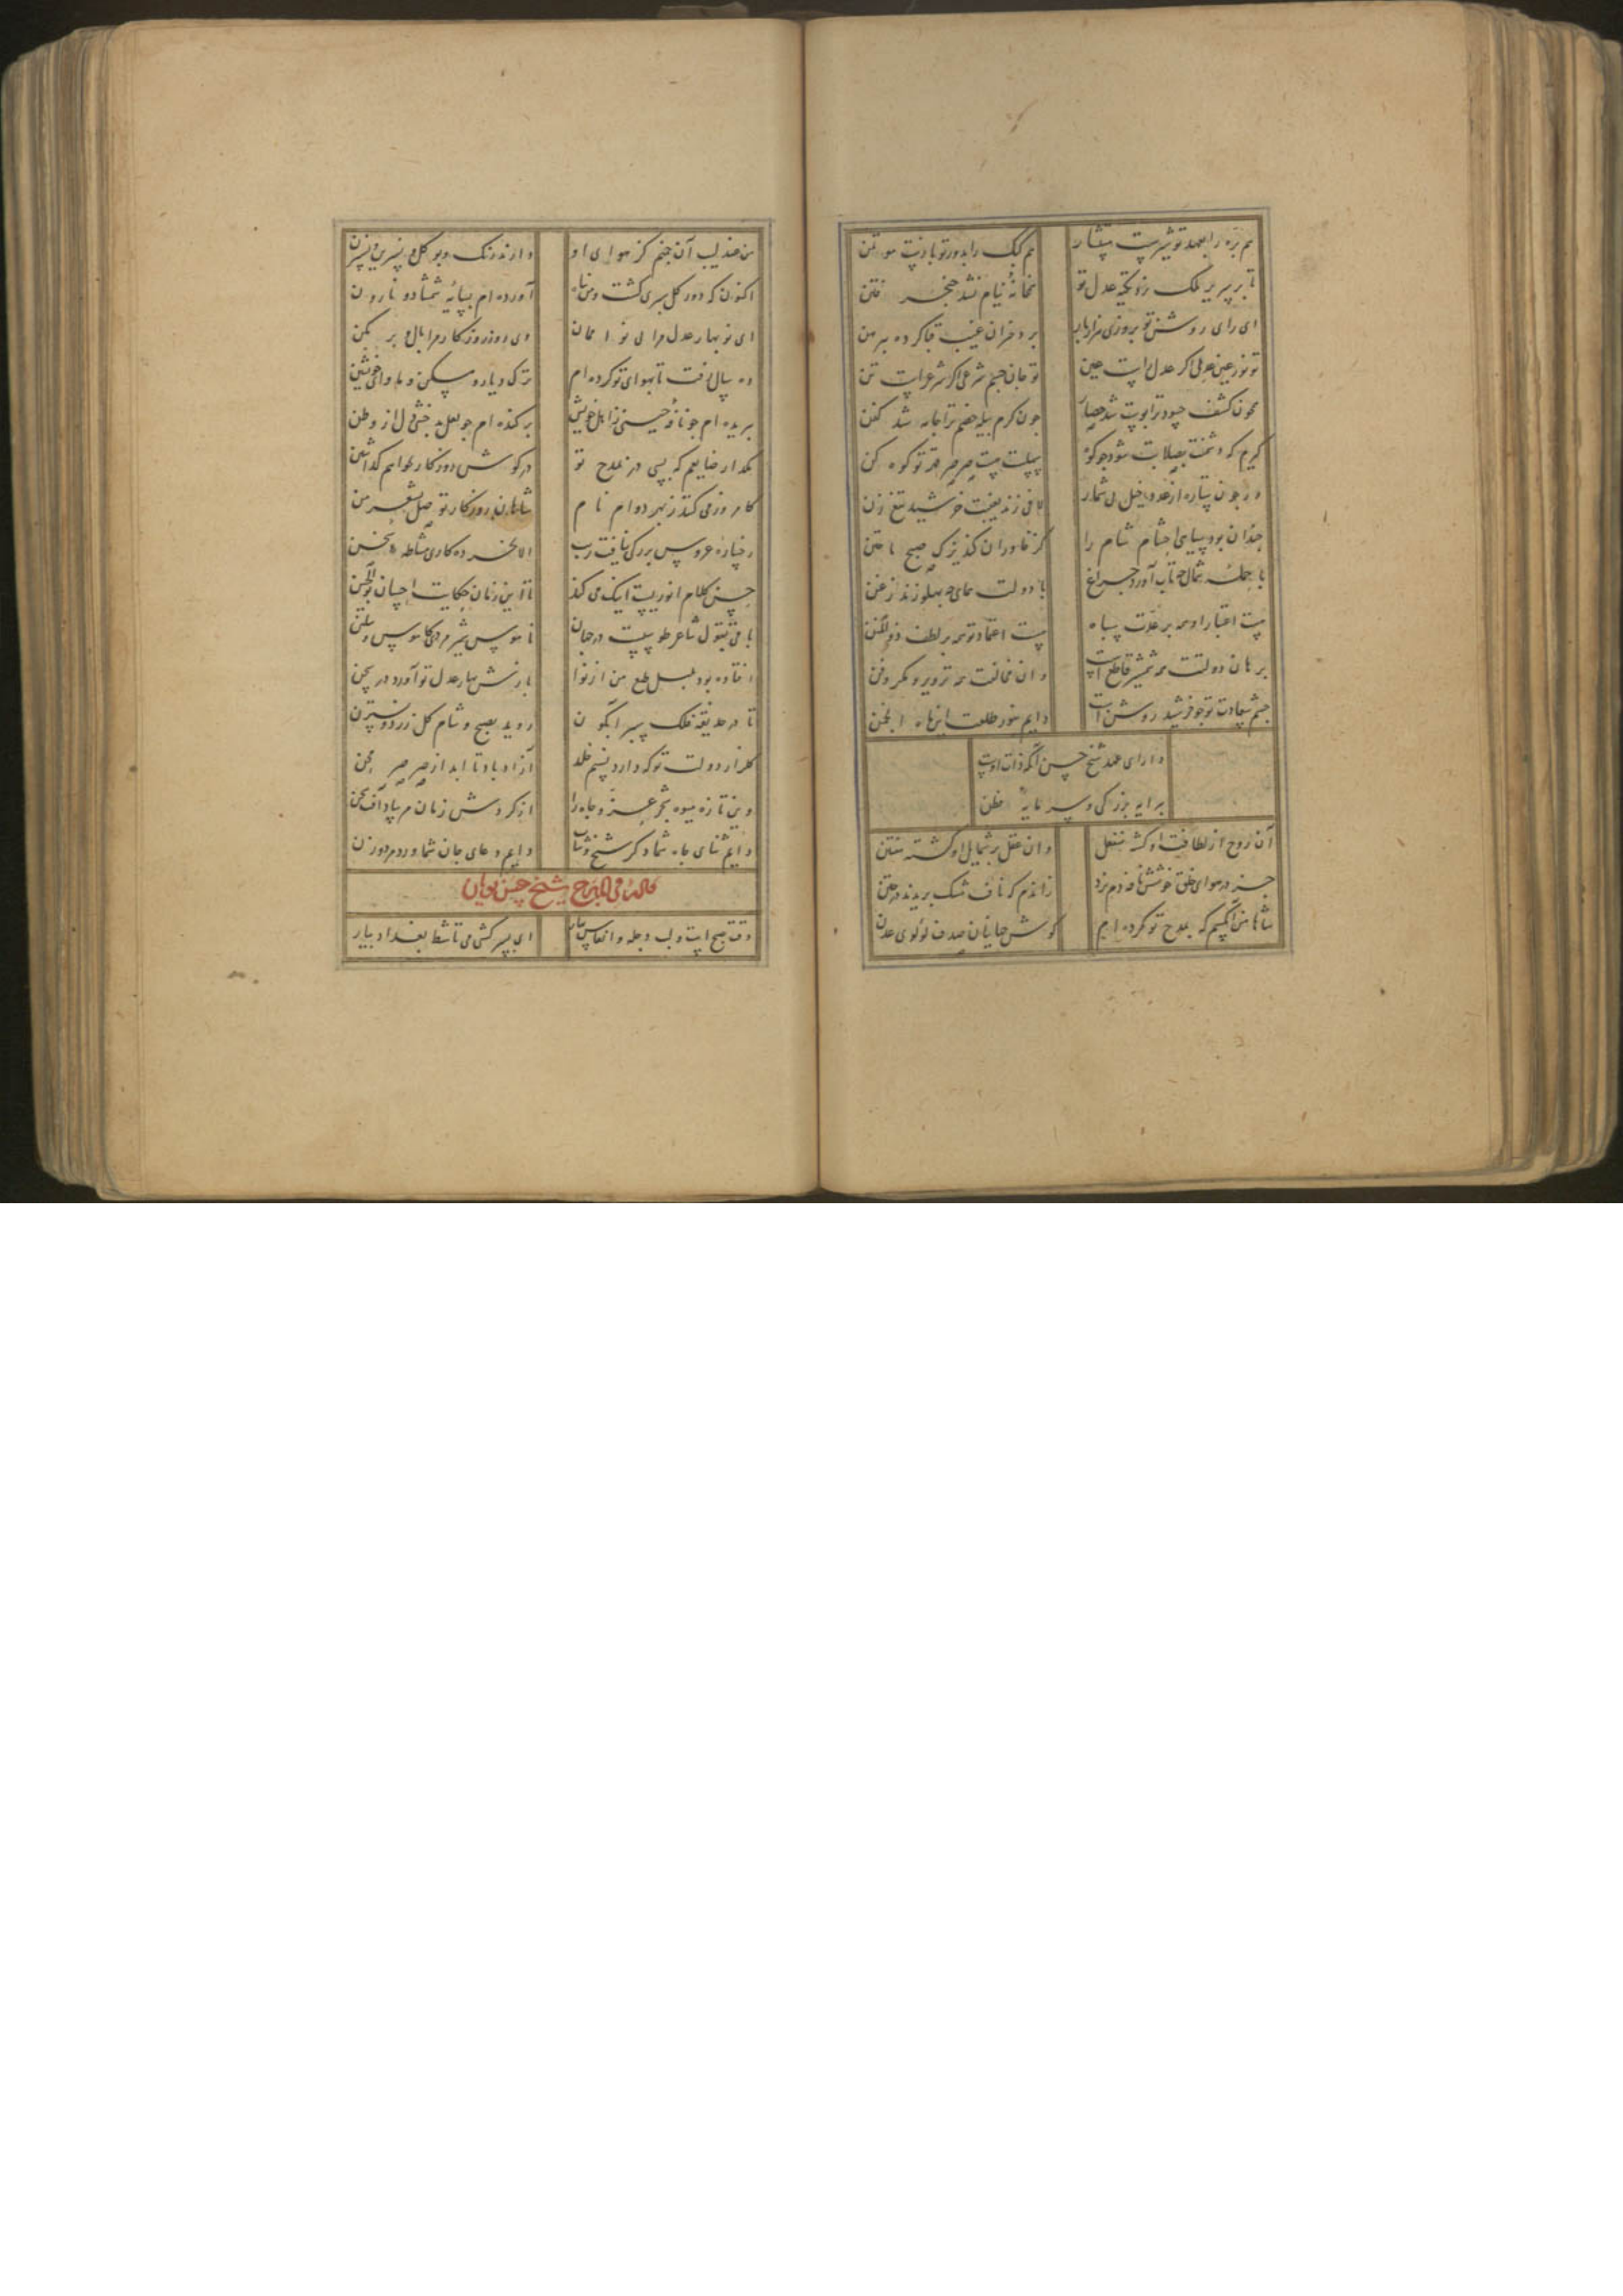 هم بره را بعهد تو شیرست پیشکار
هم کبک را بدور تو بازست موتمن
تا بر سریر ملک زد تکیه عدل تو
نشد خنجر فتن
ای رای روشن تو بروزی هزار بار
بر دختران غیب قبا کرده پیرهن
تو نور عین عدلی اگر عدل راست عین
تو جان جسم شرعی اگر شرع راست تن
همچون کشف حسود ترا پوست شد حصار
چون کرم پیله خصم ترا جامه شد کفن
گیرم که دشمنت بصلابت شود چو کوه
سیلیست صرصر قهر تو کوه کن
ور چون ستاره از عدد خیل بی شمار
لافی زند بغیبت خورشید تیغ زن
چندان بود سیاهی احشام شام را
کز خاوران کند یزک صبح تاختن
با حمله شمال چه تاب آورد چراغ
با دولت همای چه پهلو زند زغن
هست اعتبار او همه بر عدت سپاه
هست اعتماد تو همه بر لطف ذوالمنن
برهان دولتت همه شمشیر قاطع است
وان مخالفت همه تزویر و مکر و فن
چشم سعادت تو چو خورشید روشن است
دایم بنور طلعت این ماه انجمن
دارای عهد شیخ حسن آنکه ذات اوست
پیرایه بزرگی و سرمایه فطن
آن روح از لطافت او گشته منفعل
وان عقل بر شمایل او گشته مفتتن
جز در هوای خلق خوشش نافه دم نزد
زاندم که ناف مشک بریدند در ختن
شاها من آن کسم که بمدح تو کرده ام
گوش جهانیان صدف لولوی عدن
من عندلیب آن چمنم کز هوای او
دارند رنگ و بو گل و نسرین و نسترن
اکنون که دور گل سپری گشت و من بماه
آورده ام بسایه شمشاد و نارون
ای نوبهار عدل مرا بی نوا ممان
وی روز روزگار مرا بال و پر مکن
ده سال رفت تا بهوای تو کرده ام
ترک دیار و مسکن و ماوای خویشتن
ببریده ام چو نافه چینی ز اهل خویش
برکنده ام چو لعل بدخشی دل از وطن
مگذار ضایعم که بسی در مدح تو
در گوش روزگار بخواهم گذاشتن
کامروز می کند ز پی دوام نام
شاهان روزگار توسل بشعر من
رخسار عروس بزرگی نیافت زیب
الا بخرده کاری مشاطه سخن
حسن کلام انوریست اینک می کند
تا این زمان حکایت احسان بوالحسن
باقی بقول شاعر طوسیست در جهان
ناموس شیرمردی کاوس و تهمتن
افتاده بود بلبل طبع من از نوا
بازش بهار عدل تو آورد در سخن
تا در حدیقه فلک سبز آبگون
روید بصبح و شام گل زرد و نسترن
گلزار دولت تو که دارد نسیم خلد
آزاد باد تا ابد از صرصر محن
وین تازه میوه شجر عز و جاه را
از گردش زمان مرساد آفت محن
دایم ثنای جاه شما ذکر شیخ و شاب
دایم دعای جان شما ورد مرد و زن
قال فی المدح شیخ حسن نویان
وقت صبح است و لب دجله و انفاس بهار
ای پسر کشتی می تا شط بغداد بیار